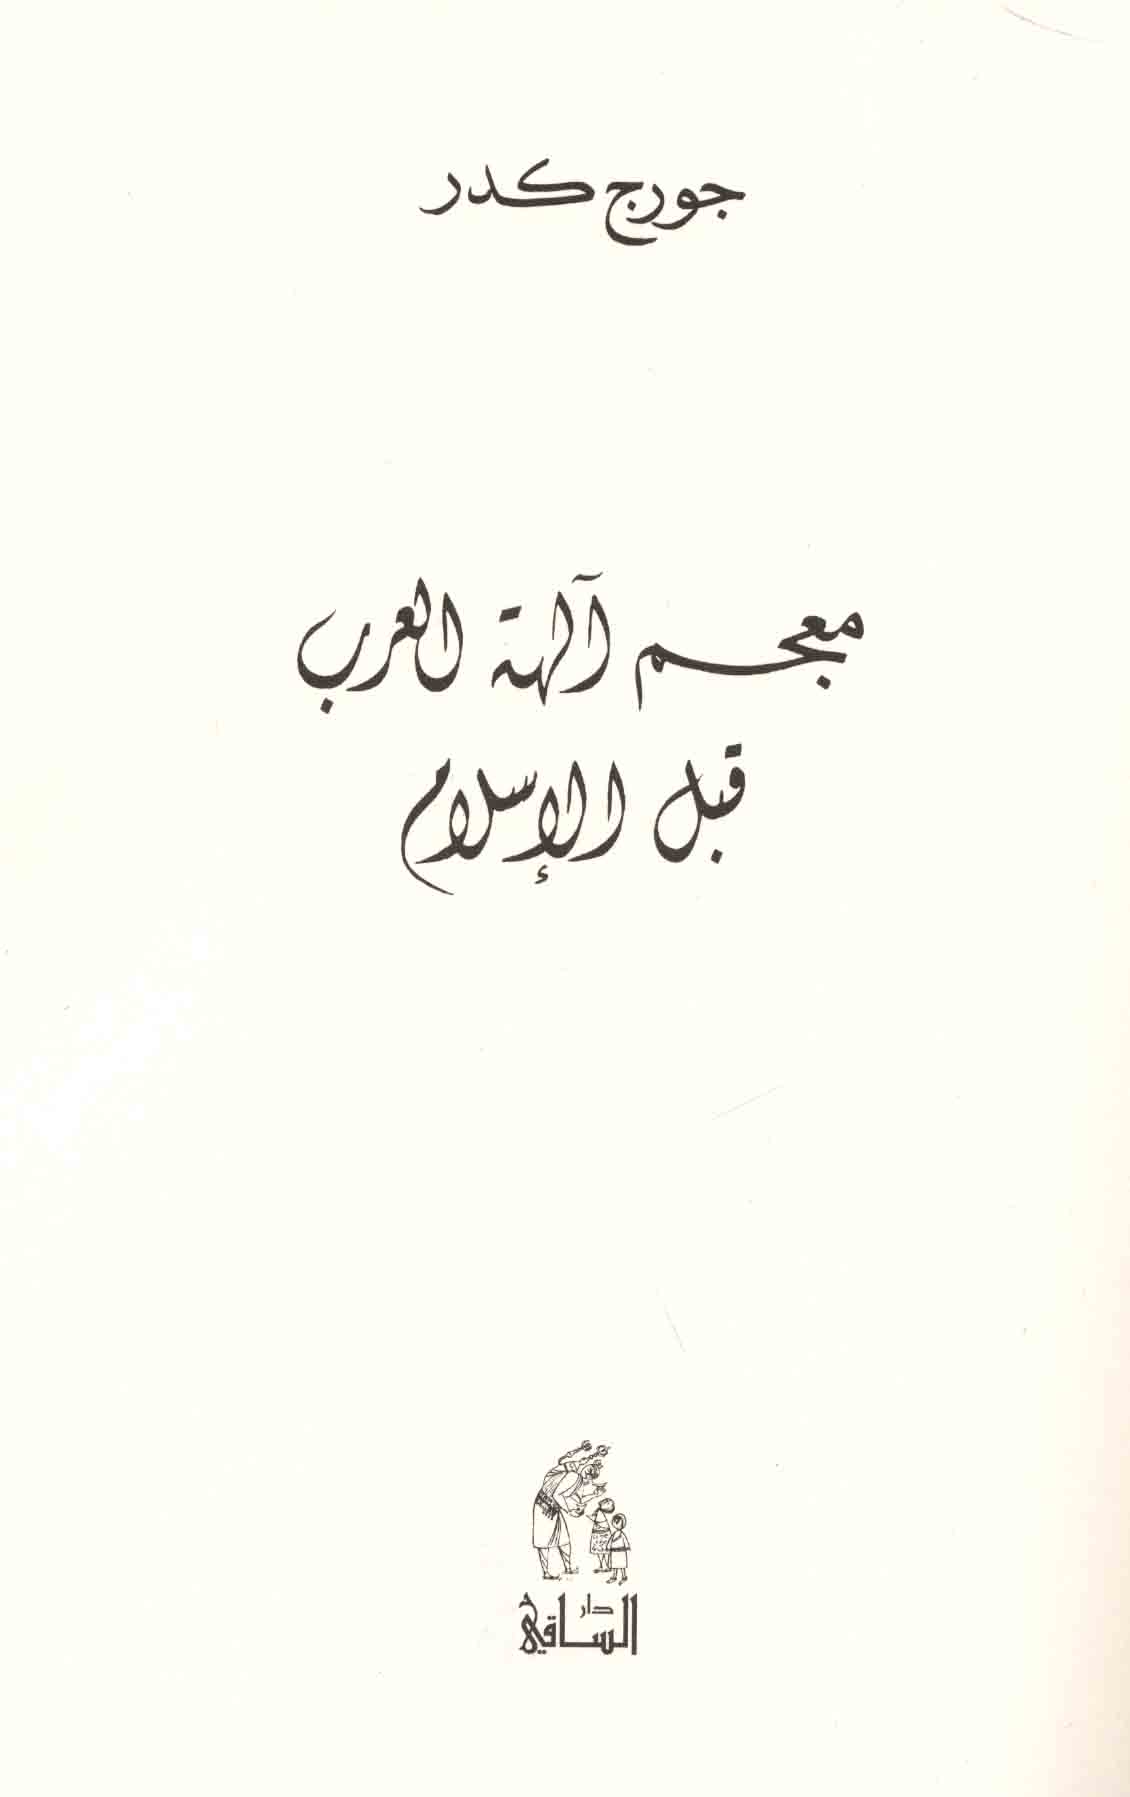 جورج كدر
معجم آلهة العرب
قبل الإسلام
دار
الساقي